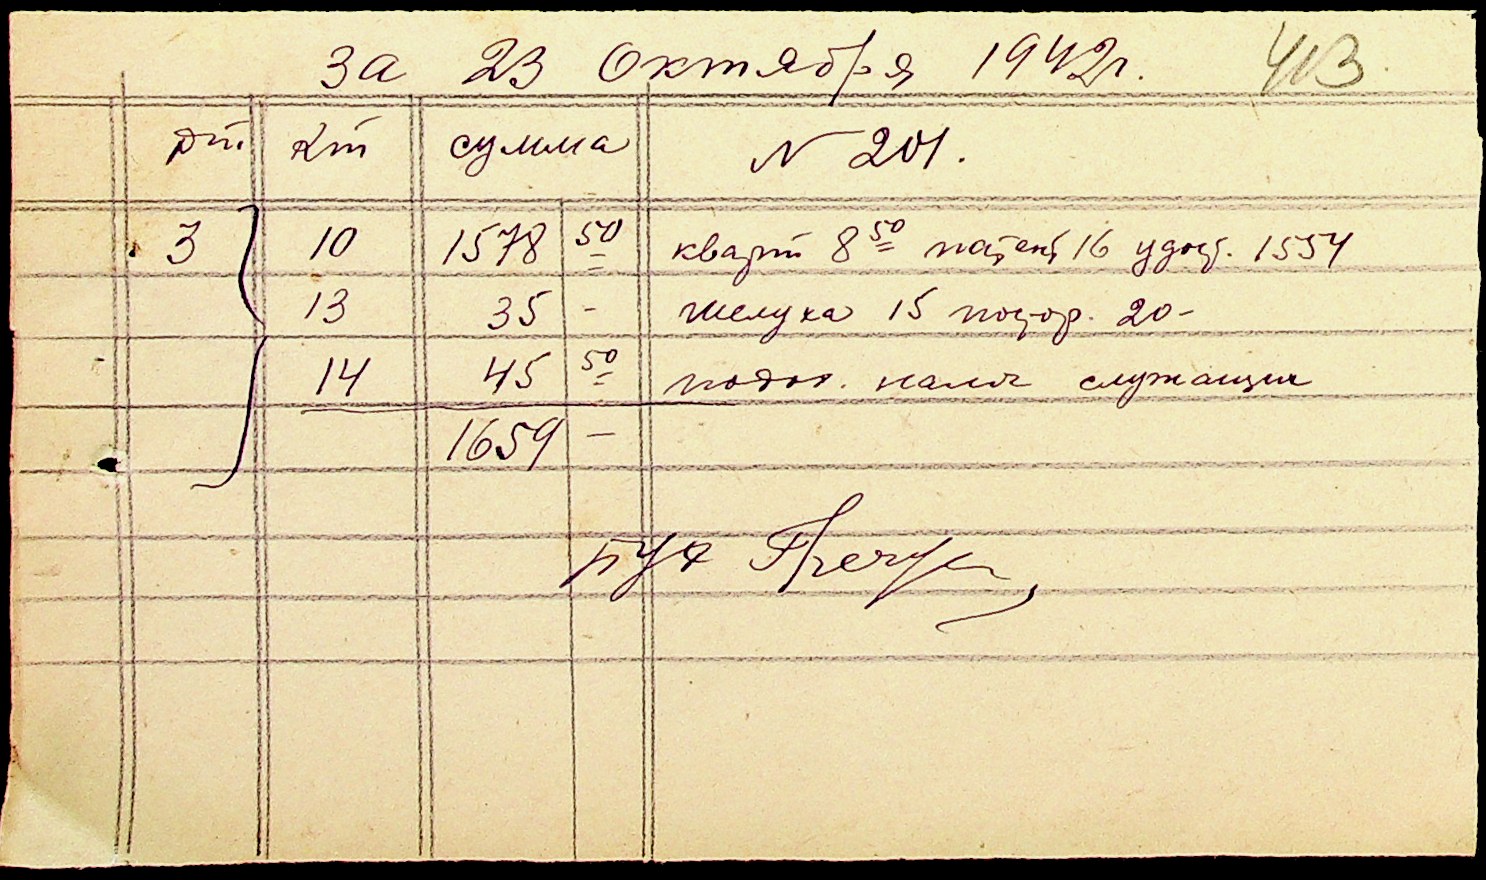 за 23 Октября 1942г. 413
Дт Кт сумма N 201.
3 10 1578 50 кварт 8 50 патент 16 удост. 1554
13 35 - шелуха 15 22 20-
14 45 50 подох. налог служащих
1659 -
бух